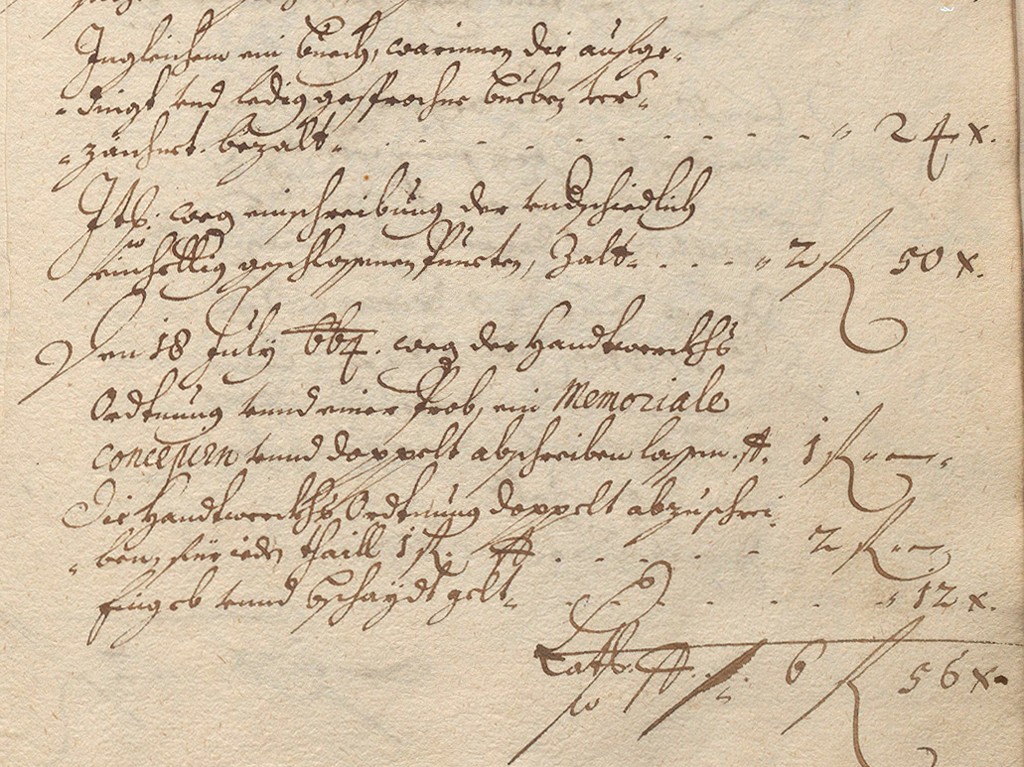 Ingleichem ein buech, warinnen die aufge-
-dingt vnd ledig gesprochne bueben ver-
-zaichnet. bezalt. . . . . . . . . . . . . . " 24 x.
Itß. weg einschreibung der vndschiedlich
einhellig geschlossenen Puncten, Zalt. . . . . " 2 fl 50 x.
Den 18 July 664. weg der Handtwerckhß
Ordtnung vnnd einer Prob, ein Memoriale
concepirn vnnd doppelt abschreiben lassen. 1 fl " —.
Die Handtwerckhß Ordtnung doppelt abzuschrei-
-ben, für ieden thaill 1 fl. . . . . . . 2 fl " —
vnnd bschaydt gelt. . . . . . . " 12 x.
Latß. 6 fl 56 x.